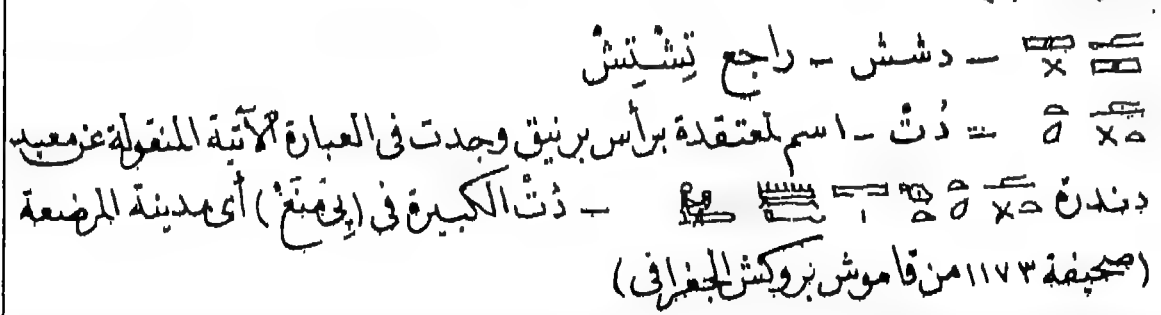 — دشش – راجع تِشْتِشْ
= دُتْ – اسم لمعتقدة برأس برنيق وجدت فى العبارة الآتية المنقولة عن معبد
دندرة – دُتْ الكبيرة فى (پى مِنَعْ) أى مدينة المرضعة
(صحيفة ١١٧٣ من قاموش بروكش الجغرافى)